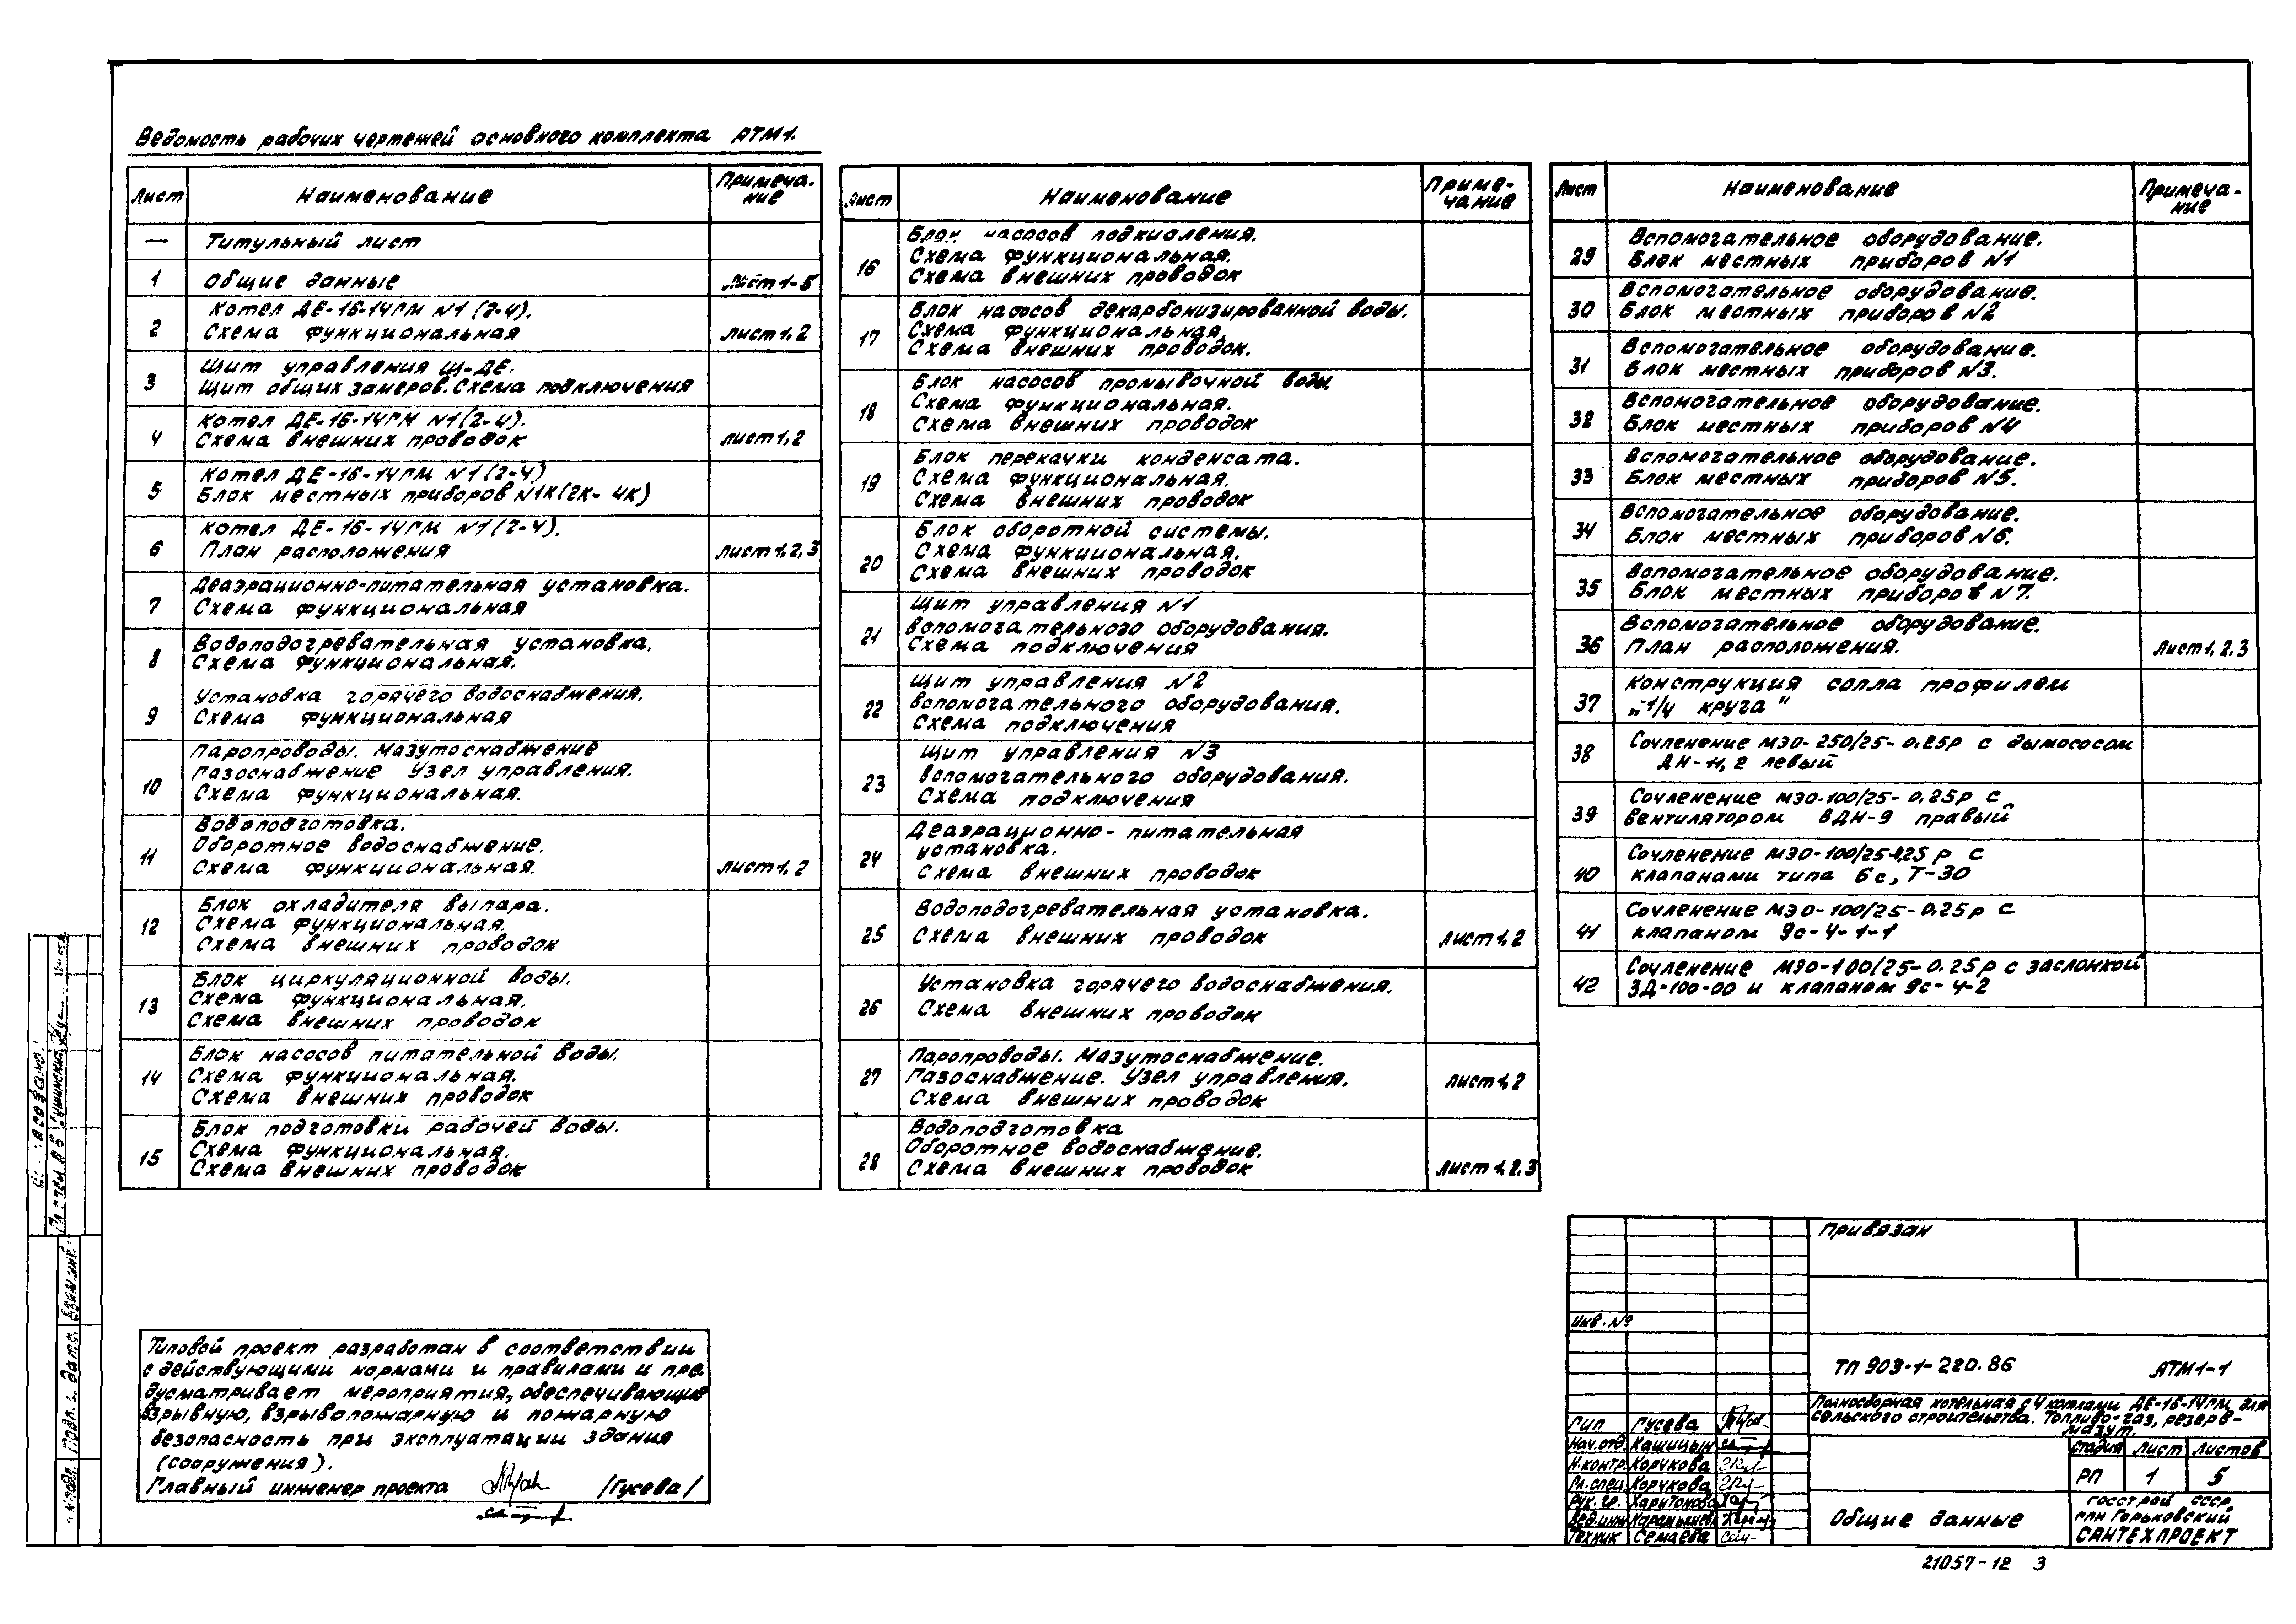 Ведомость рабочих чертежей основного комплекта АТМ1.
Лист Наименование Примеча-
ние
— Титульный лист
1 Общие данные Лист 1-5
Котел ДЕ-16-14ГМ N1 (2-4).
2 Схема функциональная лист 1,2
Щит управления Щ-ДЕ.
3 Щит общих замеров. Схема подключения
Котел ДЕ-16-14ГМ N1 (2-4).
4 Схема внешних проводок лист 1,2
Котел ДЕ-16-14ГМ N1 (2-4)
5 Блок местных приборов N1К (2К-4К)
Котел ДЕ-16-14ГМ N1 (2-4).
6 План расположения лист 1,2,3
Деаэрационно-питательная установка.
7 Схема функциональная
Водоподогревательная установка.
8 Схема функциональная.
Установка горячего водоснабжения.
9 Схема функциональная
Паропроводы. Мазутоснабжение
Газоснабжение Узел управления.
10 Схема функциональная.
Водоподготовка.
Оборотное водоснабжение.
11 Схема функциональная. лист 1,2
Блок охладителя выпара.
12 Схема функциональная.
Схема внешних проводок
Блок циркуляционной воды.
13 Схема функциональная.
Схема внешних проводок
Блок насосов питательной воды.
14 Схема функциональная.
Схема внешних проводок
Блок подготовки рабочей воды.
15 Схема функциональная.
Схема внешних проводок
Лист Наименование Приме-
чание
Блок насосов подкисления.
16 Схема функциональная.
Схема внешних проводок
Блок насосов декарбонизированной воды.
17 Схема функциональная,
Схема внешних проводок.
Блок насосов промывочной воды
18 Схема функциональная.
Схема внешних проводок
Блок перекачки конденсата.
19 Схема функциональная.
Схема внешних проводок
Блок оборотной системы.
20 Схема функциональная.
Схема внешних проводок
Щит управления N1
21 вспомогательного оборудования.
Схема подключения
Щит управления N2
22 вспомогательного оборудования.
Схема подключения
Щит управления N3
23 вспомогательного оборудования.
Схема подключения
Деаэрационно-питательная
24 установка.
Схема внешних проводок
Водоподогревательная установка.
25 Схема внешних проводок лист 1,2
Установка горячего водоснабжения.
26 Схема внешних проводок
Паропроводы. Мазутоснабжение.
27 Газоснабжение. Узел управления. лист 1,2
Схема внешних проводок
Водоподготовка
Оборотное водоснабжение.
28 Схема внешних проводок Лист 1,2,3
Лист Наименование Примеча-
ние
Вспомогательное оборудование.
29 Блок местных приборов N1
Вспомогательное оборудование.
30 Блок местных приборов N2
Вспомогательное оборудование.
31 Блок местных приборов N3.
Вспомогательное оборудование.
32 Блок местных приборов N4
Вспомогательное оборудование.
33 Блок местных приборов N5.
Вспомогательное оборудование.
34 Блок местных приборов N6.
Вспомогательное оборудование.
35 Блок местных приборов N7.
Вспомогательное оборудование.
36 План расположения. Лист 1,2,3
Конструкция сопла профилем
37 „1/4 круга"
Сочленение МЭО-250/25-0,25Р с дымососом
38 ДН-11,2 левый
Сочленение МЭО-100/25-0,25Р с
39 вентилятором ВДН-9 правый
Сочленение МЭО-100/25-0,25Р с
40 клапанами типа 6с, Т-30
Сочленение МЭО-100/25-0,25Р с
41 клапаном 9с-4-1-1
Сочленение МЭО-100/25-0.25Р с заслонкой
42 ЗД-100-00 и клапаном 9с-4-2
Типовой проект разработан в соответствии
с действующими нормами и правилами и пре-
дусматривает мероприятия, обеспечивающие
взрывную, взрывопожарную и пожарную
безопасность при эксплуатации здания
(сооружения).
Главный инженер проекта /Гусева/
Привязан
Инв. №
ТП 903-1-220.86 АТМ1-1
Полносборная котельная с 4 котлами ДЕ-16-14ГМ для
сельского строительства. Топливо-газ, резерв-
мазут.
ГИП Гусева
Нач.отд. Кашицын
Н.контр. Корчкова
Гл.спец. Корчкова
Рук.гр. Харитонова
Вед.инж
Техник Семаева
Стадия Лист Листов
РП 1 5
Общие данные
Госстрой СССР,
ГПИ Горьковский
САНТЕХПРОЕКТ
21057-12 3